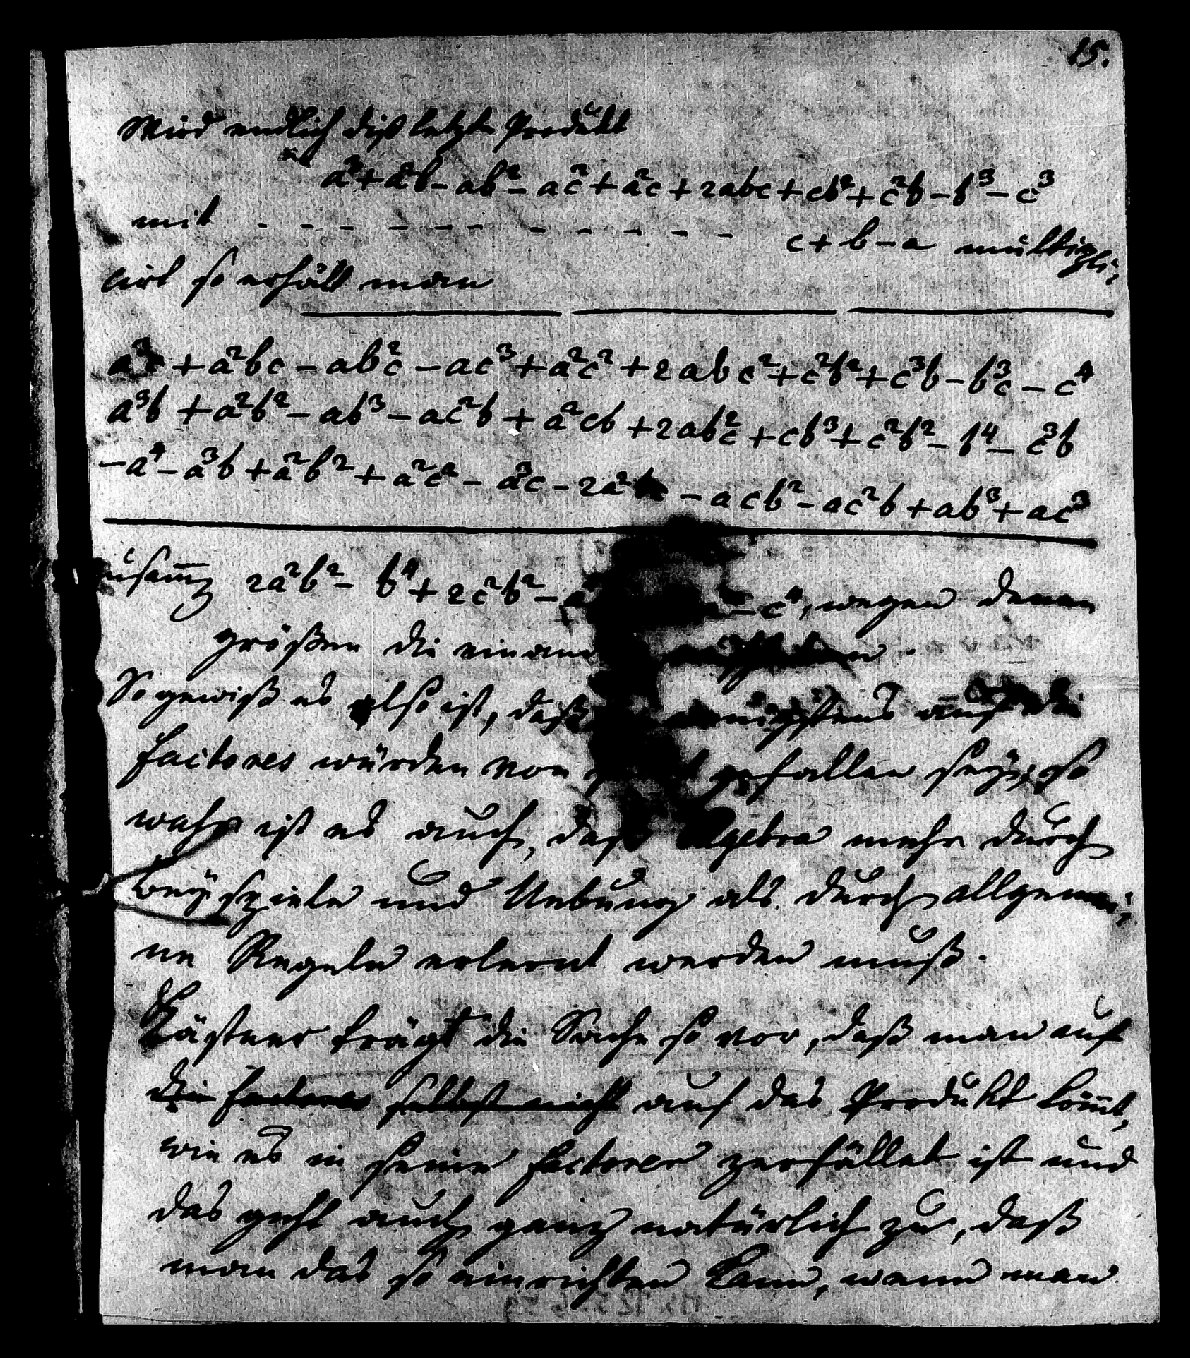 15.
Wird endlich diß letzte Produkt
a³+a²b-ab²-ac²+a²c+2abc+cb²+c²b-b³-c³
mit - - - - - - - - - - c+b-a multipli-
cirt so erhält man
a³c+a²bc-ab²c-ac³+a²c²+2abc²+c²b²+c³b-b³c-c⁴
a³b+a²b²-ab³-ac²b+a²cb+2ab²c+cb³+c²b²-b⁴-c³b
-a⁴-a³b+a²b²+a²c²-a³c-2a²bc-acb²-ac²b+ab³+ac³
zusam̄en 2a²b²-b⁴+2c²b²- -c⁴, wegen denen
größen die einander aufheben.
So gewiß es also ist, daß wenigstens auf die
factores würden von gefallen seyn, so
wahr ist es auch, daß Algebra mehr durch
Beyspiele und Uebung als durch allgemei-
ne Regeln erlernt werden muß.
Kästner trägt die Sache so vor, daß man auf
die factores selbst nicht auf das Produkt köm̄t,
wie es in seine factoren zerfället ist und
das geht auch ganz natürlich zu, daß
man das so einrichten kann, wann man